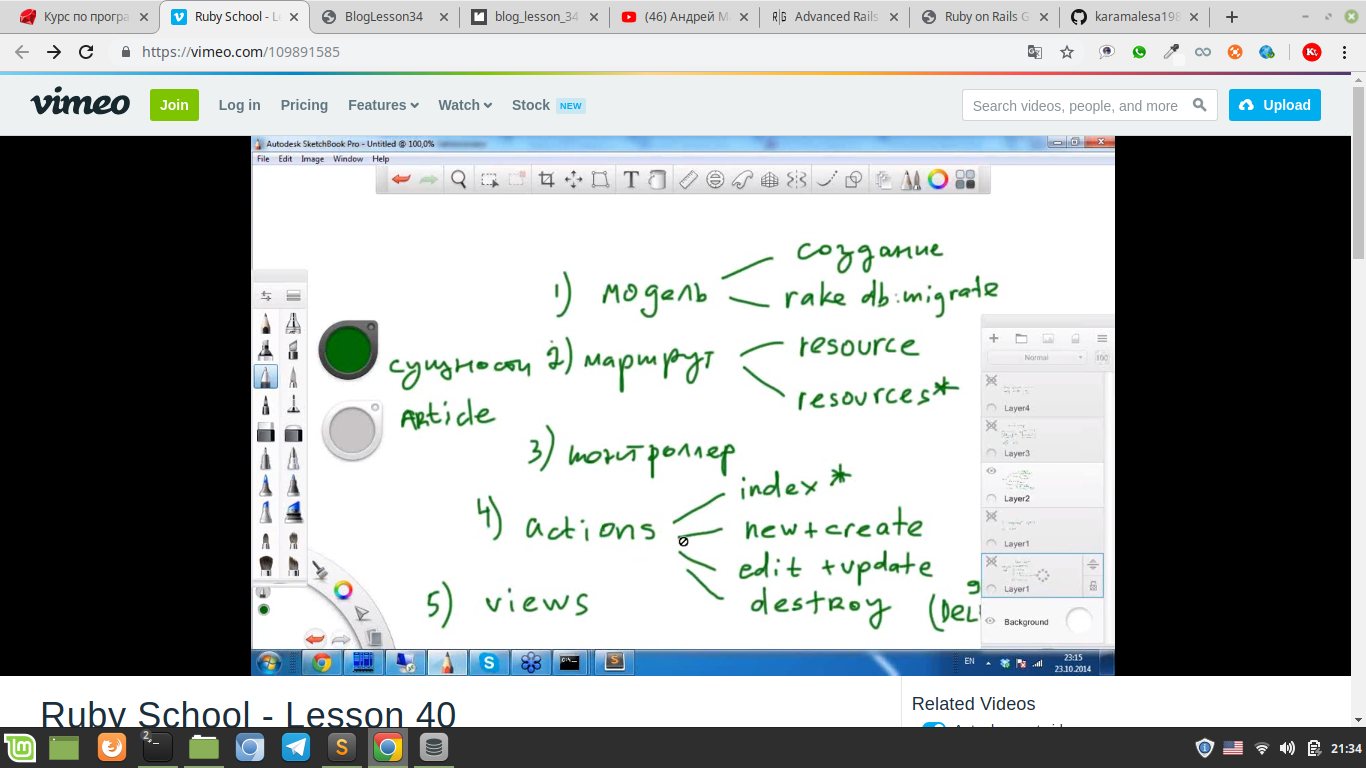 Курс по програ
Ruby School - L
BlogLesson34
blog_lesson_34
(46) Андрей М
Advanced Rails
Ruby on Rails G
karamalesa198
https://vimeo.com/109891585
vimeo
Join
Log in
Pricing
Features
Watch
Stock NEW
Search videos, people, and more
Upload
Autodesk SketchBook Pro - Untitled @ 100,0%
File Edit Image Window Help
создание
1) модель
rake db:migrate
resource
сущности 2) маршрут
resources*
Article
3) контроллер
index *
4) actions
new+create
edit +update
5) views
destroy (DEL
Normal
100
Layer4
Layer3
Layer2
Layer1
Layer1
Background
EN
23:15
23.10.2014
Ruby School - Lesson 40
Related Videos
21:34